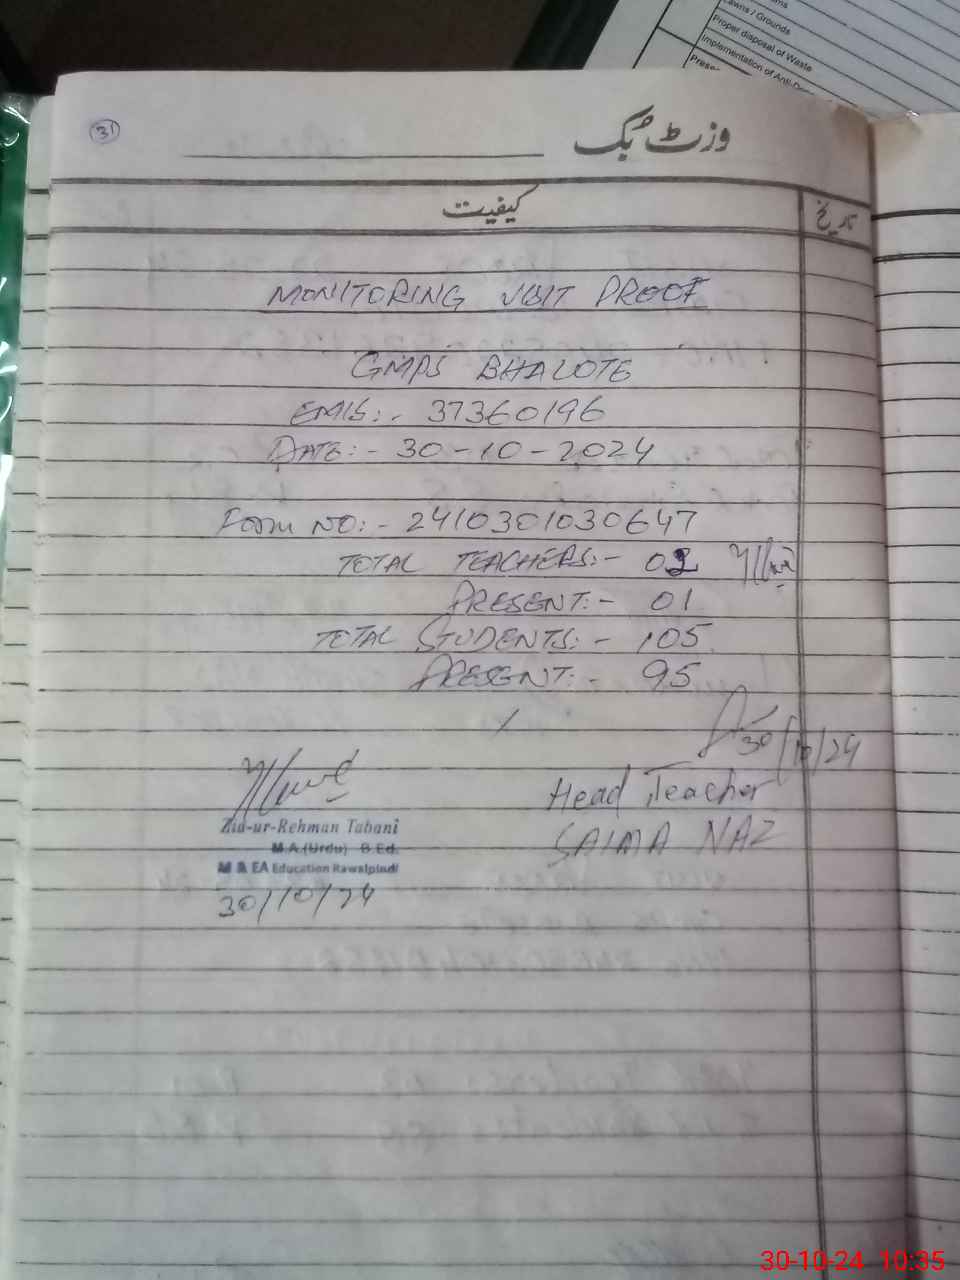 Lawns / Grounds
Proper disposal of Waste
Implementation of Anti-
31
وزٹ بک
کیفیت
تاریخ
MONITORING VISIT PROOF
GMPS BHALOTE
EMIS:- 37360196
DATE:- 30-10-2024
Form NO:- 2410301030647
TOTAL TEACHERS:- 02
PRESENT:- 01
TOTAL STUDENTS:- 105
PRESENT:- 95
30/10/24
Head Teacher
SAIMA NAZ
Zia-ur-Rehman Tabani
M.A.(Urdu) B.Ed.
M & EA Education Rawalpindi
30/10/24
30-10-24 10:35